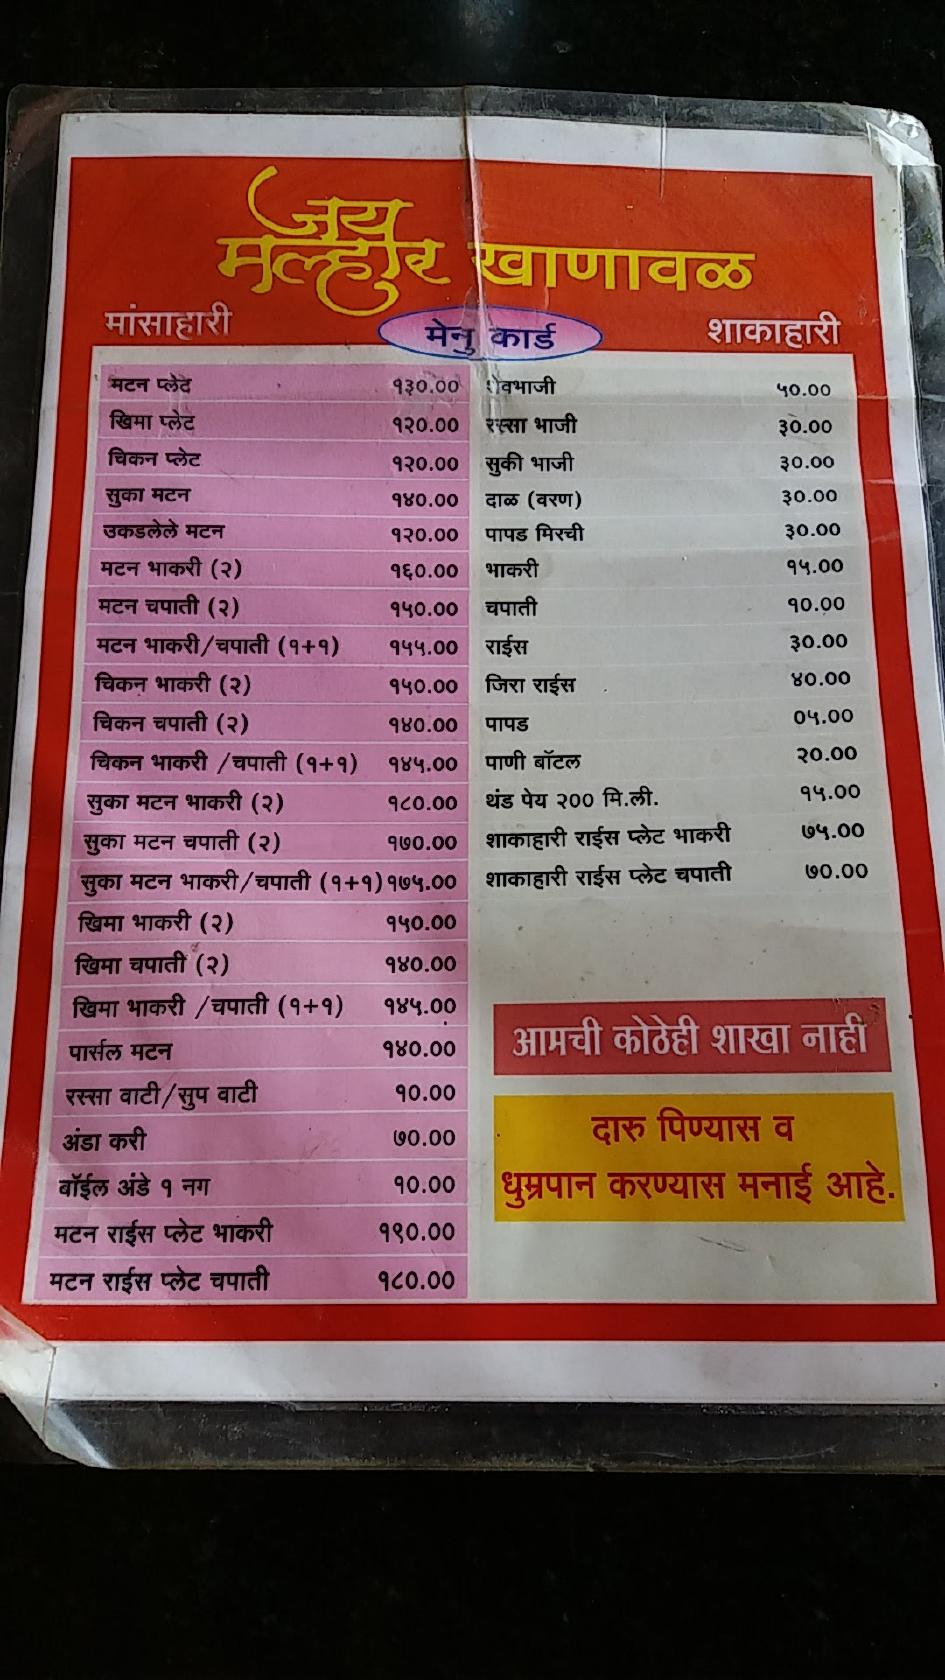 जय
मल्हार खाणावळ
मांसाहारी
मेनु कार्ड
शाकाहारी
मटन प्लेट १३०.००
खिमा प्लेट १२०.००
चिकन प्लेट १२०.००
सुका मटन १४०.००
उकडलेले मटन १२०.००
मटन भाकरी (२) १६०.००
मटन चपाती (२) १५०.००
मटन भाकरी/चपाती (१+१) १५५.००
चिकन भाकरी (२) १५०.००
चिकन चपाती (२) १४०.००
चिकन भाकरी /चपाती (१+१) १४५.००
सुका मटन भाकरी (२) १८०.००
सुका मटन चपाती (२) १७०.००
सुका मटन भाकरी/चपाती (१+१) १७५.००
खिमा भाकरी (२) १५०.००
खिमा चपाती (२) १४०.००
खिमा भाकरी /चपाती (१+१) १४५.००
पार्सल मटन १४०.००
रस्सा वाटी/सुप वाटी १०.००
अंडा करी ७०.००
बॉईल अंडे १ नग १०.००
मटन राईस प्लेट भाकरी १९०.००
मटन राईस प्लेट चपाती १८०.००
शेवभाजी ५०.००
रस्सा भाजी ३०.००
सुकी भाजी ३०.००
दाळ (वरण) ३०.००
पापड मिरची ३०.००
भाकरी १५.००
चपाती १०.००
राईस ३०.००
जिरा राईस ४०.००
पापड ०५.००
पाणी बॉटल २०.००
थंड पेय २०० मि.ली. १५.००
शाकाहारी राईस प्लेट भाकरी ७५.००
शाकाहारी राईस प्लेट चपाती ७०.००
आमची कोठेही शाखा नाही
दारु पिण्यास व
धुम्रपान करण्यास मनाई आहे.